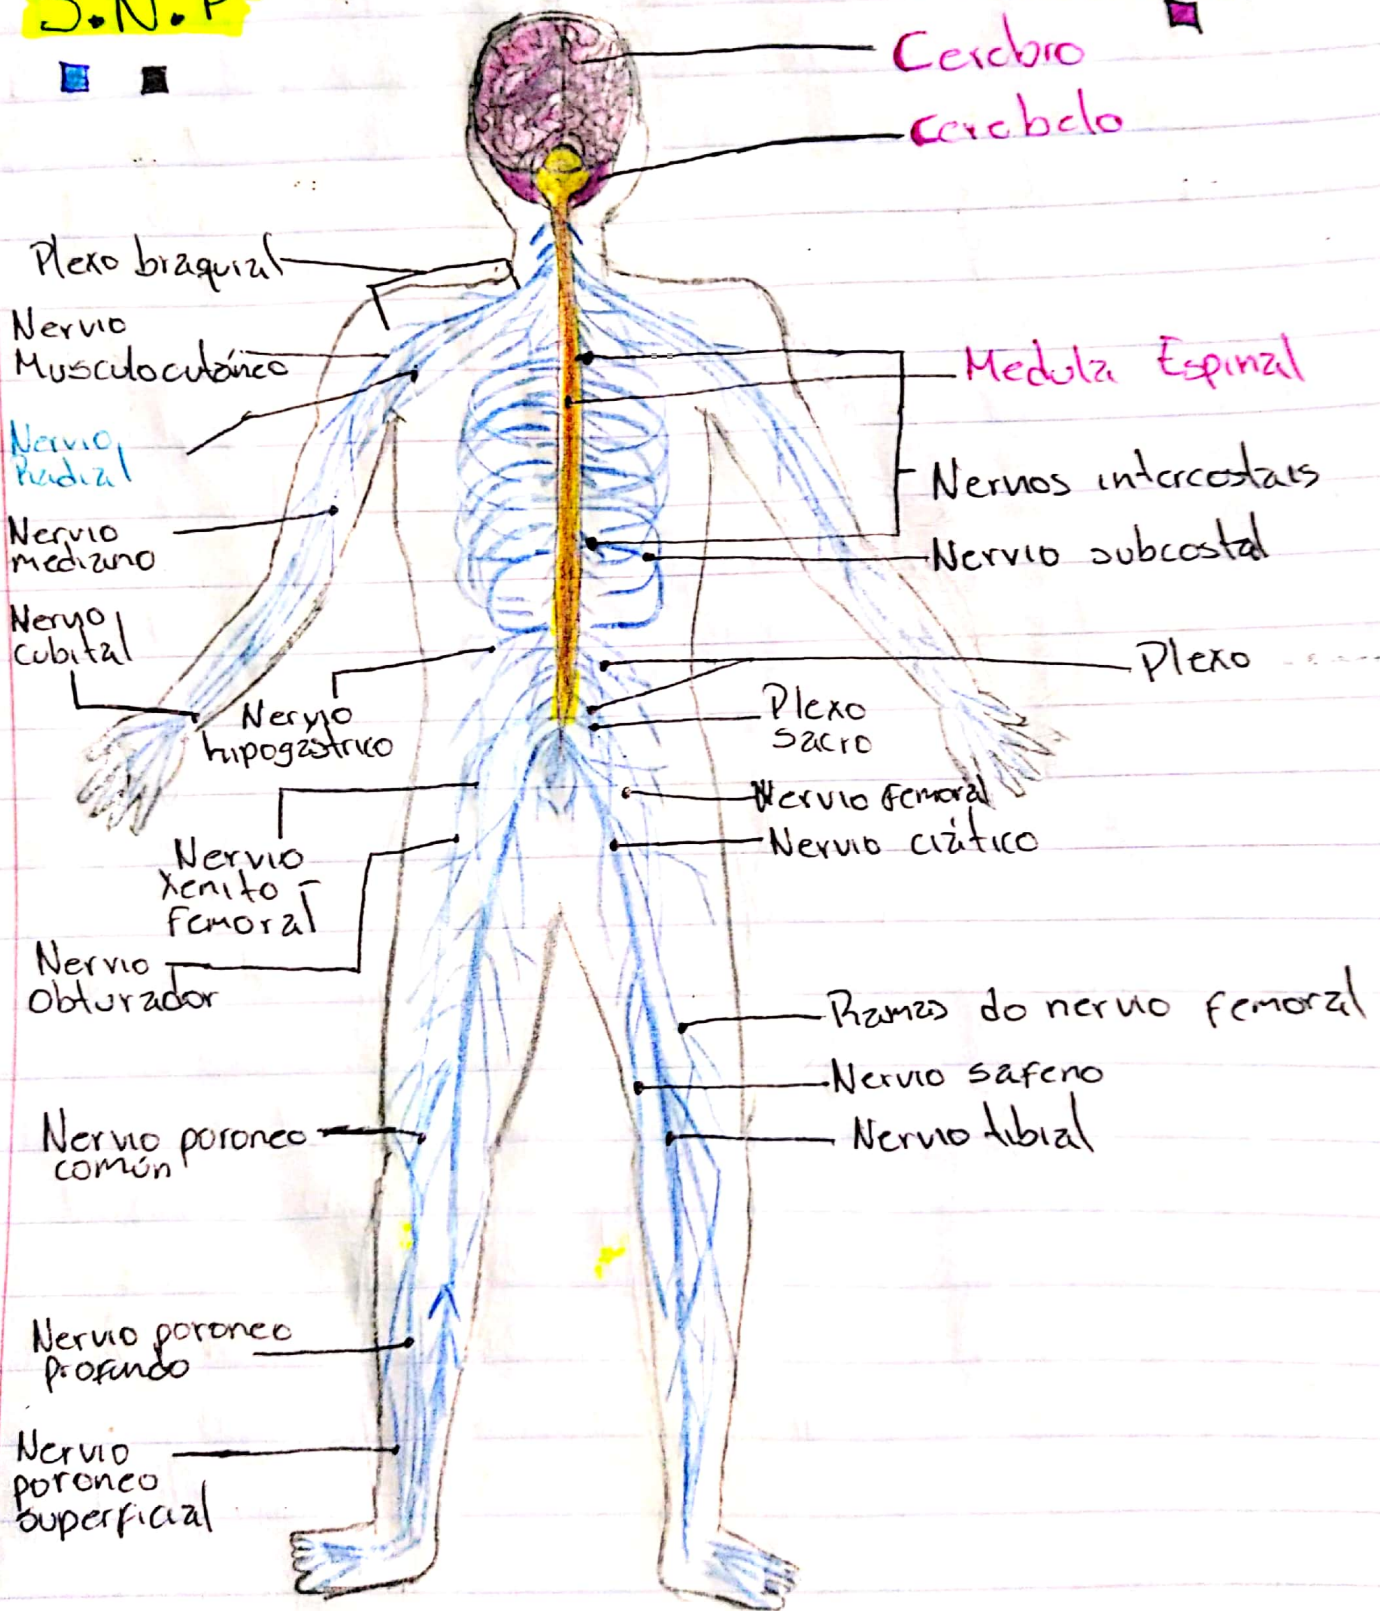 S.N.P
Cerebro
Cerebelo
Plexo braquial
Nervio
Musculocutáneo
Nervio
Radial
Nervio
mediano
Nervio
cubital
Nervio
hipogástrico
Nervio
Xenito-
femoral
Nervio
obturador
Nervio poroneo
común
Nervio poroneo
profundo
Nervio
poroneo
superficial
Medula Espinal
Nervios intercostais
Nervio subcostal
Plexo
Plexo
sacro
Nervio femoral
Nervio ciático
Ramas do nervio femoral
Nervio safeno
Nervio tibial